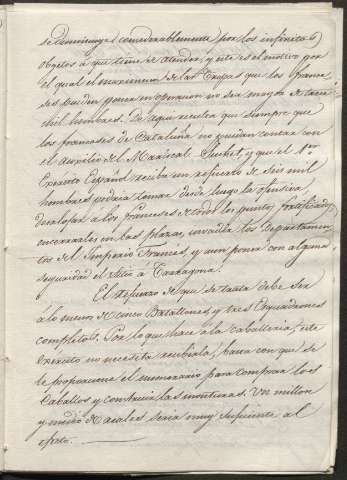 se disminuye considerablemente por los infinitos
objetos a que tiene de atender, y este es el motivo por
el qual el maximum de las Tropas que los france
ses pueden poner en operacion no sea mayor de trece
mil hombres. De aqui resulta que siempre que
los franceses de Cataluña no puedan contar con
el auxilio del Mariscal Suchet, y que el 1er
Exército Español reciba un refuerzo de seis mil
hombres podría tomar desde luego la ofensiva,
desalojar a los franceses de todos los puntos fortificados
encerrarlos en las plazas, invadir los Departamen
tos del Imperio Francés, y aun poner con alguna
seguridad el sitio á Tarragona.
El refuerzo de que se trata debe ser
á lo menos de cinco Batallones, y tres Esquadrones
completos. Por lo que hace á la caballeria, este
Exército no necesita recibirla, basta con que se
le proporcione el numerario para comprar los
caballos y construir las monturas. Un millon
y medio de reales seria muy suficiente al
efecto.